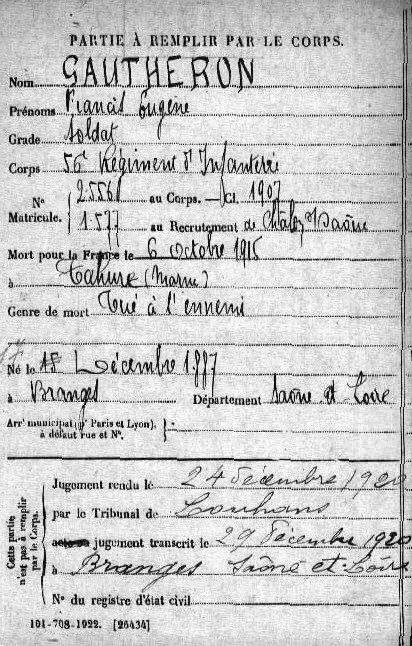 PARTIE À REMPLIR PAR LE CORPS.
Nom GAUTHERON
Prénoms Francis Eugène
Grade Soldat
Corps 56e Régiment d'Infanterie
N° Matricule. { 2556 au Corps. — Cl. 1907
1577 au Recrutement de Chalon s/ Saône
Mort pour la France le 6 Octobre 1915
à Tahure (Marne)
Genre de mort Tué à l'ennemi
17
Né le 18 Décembre 1887
à Branges Département Saône et Loire
Arrt municipal (pr Paris et Lyon), à défaut rue et N°. {
Cette partie n'est pas à remplir par le Corps.
Jugement rendu le 24 décembre 1920
par le Tribunal de Louhans
acte ou jugement transcrit le 29 décembre 1920
à Branges Saône et-Loire
N° du registre d'état civil
101-708-1922. [26434]